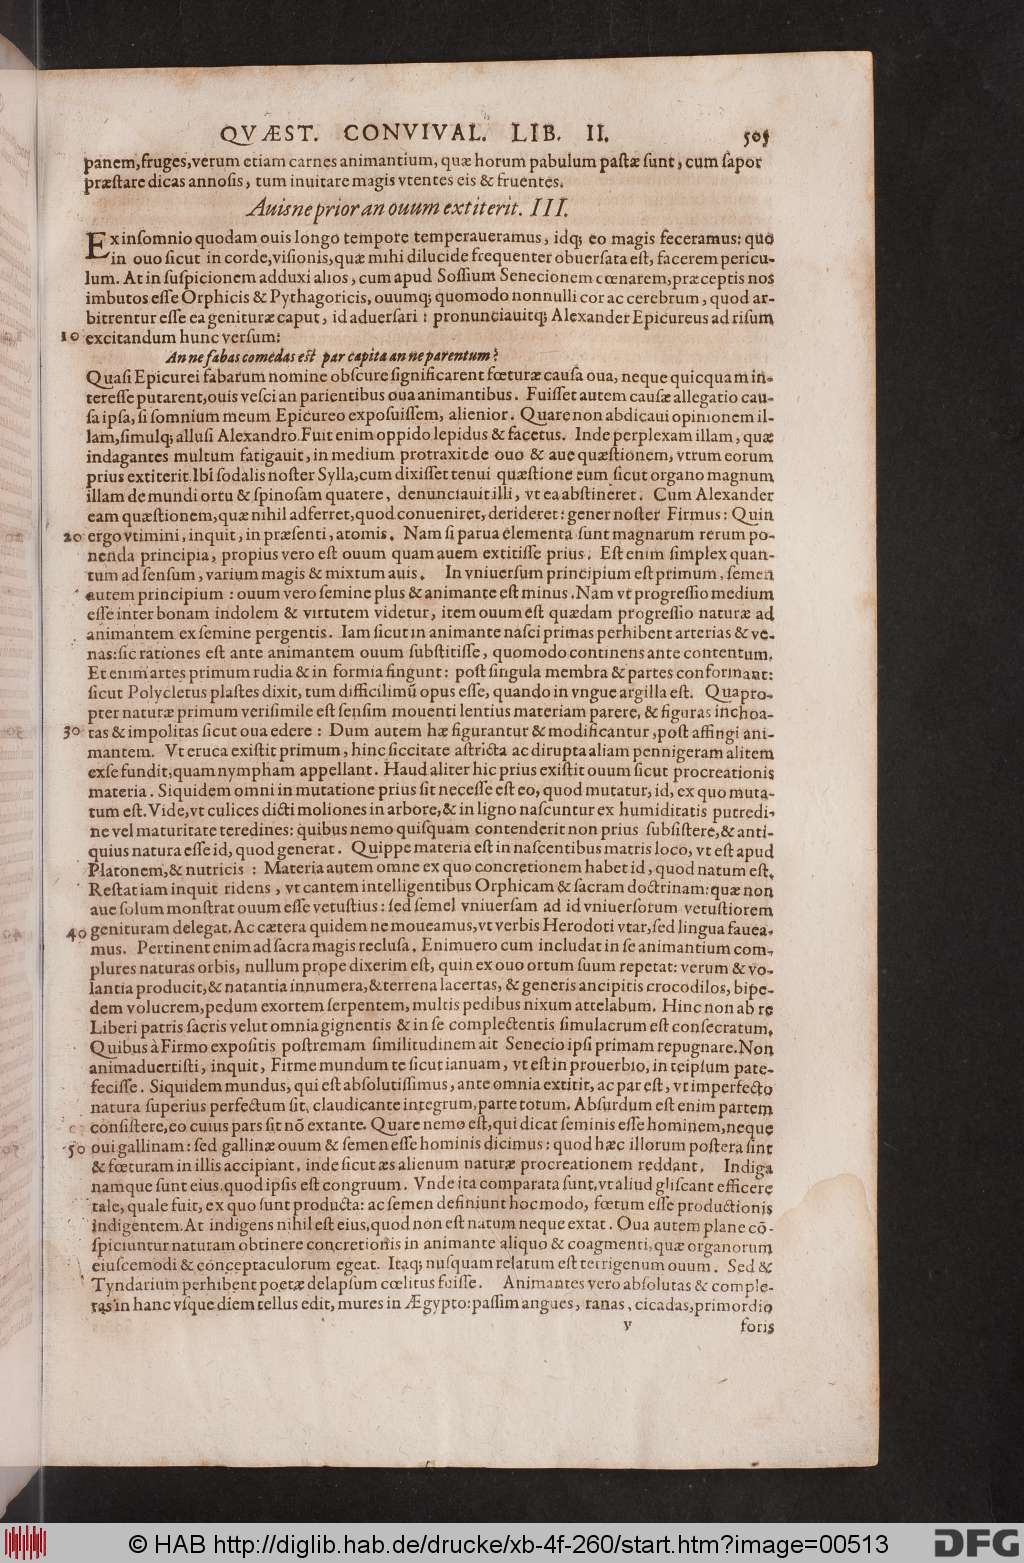 QVÆST. CONVIVAL. LIB. II. 505
panem, fruges, verum etiam carnes animantium, quæ horum pabulum pastæ sunt, cum sapor
præstare dicas annosis, tum inuitare magis vtentes eis & fruentes.
Auisne prior an ouum extiterit. III.
Ex insomnio quodam ouis longo tempore temperaueramus, idq; eo magis feceramus: quo
in ouo sicut in corde, visionis, quæ mihi dilucide frequenter obuersata est, facerem pericu-
lum. At in suspicionem adduxi alios, cum apud Sossium Senecionem cœnarem, præceptis nos
imbutos esse Orphicis & Pythagoricis, ouumq; quomodo nonnulli cor ac cerebrum, quod ar-
bitrentur esse ea genituræ caput, id aduersari: pronunciauitq; Alexander Epicureus ad risum
10 excitandum hunc versum:
An ne fabas comedas est par capita an ne parentum?
Quasi Epicurei fabarum nomine obscure significarent fœturæ causa oua, neque quicquam in-
teresse putarent, ouis vesci an parientibus oua animantibus. Fuisset autem causæ allegatio cau-
sa ipsa, si somnium meum Epicureo exposuissem, alienior. Quare non abdicaui opinionem il-
lam, simulq; allusi Alexandro. Fuit enim oppido lepidus & facetus. Inde perplexam illam, quæ
indagantes multum fatigauit, in medium protraxit de ouo & aue quæstionem, vtrum eorum
prius extiterit. Ibi sodalis noster Sylla, cum dixisset tenui quæstione eum sicut organo magnum
illam de mundi ortu & spinosam quatere, denunciauit illi, vt ea abstineret. Cum Alexander
eam quæstionem, quæ nihil adferret, quod conueniret, derideret: gener noster Firmus: Quin
20 ergo vtimini, inquit, in præsenti, atomis. Nam si parua elementa sunt magnarum rerum po-
nenda principia, propius vero est ouum quam auem extitisse prius. Est enim simplex quan-
tum ad sensum, varium magis & mixtum auis. In vniuersum principium est primum, semen
autem principium: ouum vero semine plus & animante est minus. Nam vt progressio medium
esse inter bonam indolem & virtutem videtur, item ouum est quædam progressio naturæ ad
animantem ex semine pergentis. Iam sicut in animante nasci primas perhibent arterias & ve-
nas: sic rationes est ante animantem ouum substitisse, quomodo continens ante contentum.
Et enim artes primum rudia & in formia fingunt: post singula membra & partes conformant:
sicut Polycletus plastes dixit, tum difficilimũ opus esse, quando in vngue argilla est. Quapro-
pter naturæ primum verisimile est sensim mouenti lentius materiam parere, & figuras inchoa-
30 tas & impolitas sicut oua edere: Dum autem hæ figurantur & modificantur, post affingi ani-
mantem. Vt eruca existit primum, hinc siccitate astricta ac dirupta aliam pennigeram alitem
ex se fundit, quam nympham appellant. Haud aliter hic prius existit ouum sicut procreationis
materia. Siquidem omni in mutatione prius sit necesse est eo, quod mutatur, id, ex quo muta-
tum est. Vide, vt culices dicti moliones in arbore, & in ligno nascuntur ex humiditatis putredi-
ne vel maturitate teredines: quibus nemo quisquam contenderit non prius subsistere, & anti-
quius natura esse id, quod generat. Quippe materia est in nascentibus matris loco, vt est apud
Platonem, & nutricis: Materia autem omne ex quo concretionem habet id, quod natum est.
Restat iam inquit ridens, vt cantem intelligentibus Orphicam & sacram doctrinam: quæ non
aue solum monstrat ouum esse vetustius: sed semel vniuersam ad id vniuersorum vetustiorem
40 genituram delegat. Ac cætera quidem ne moueamus, vt verbis Herodoti vtar, sed lingua fauea-
mus. Pertinent enim ad sacra magis reclusa. Enimuero cum includat in se animantium com-
plures naturas orbis, nullum prope dixerim est, quin ex ouo ortum suum repetat: verum & vo-
lantia producit, & natantia innumera, & terrena lacertas, & generis ancipitis crocodilos, bipe-
dem volucrem, pedum exortem serpentem, multis pedibus nixum attelabum. Hinc non ab re
Liberi patris sacris velut omnia gignentis & in se complectentis simulacrum est consecratum.
Quibus à Firmo expositis postremam similitudinem ait Senecio ipsi primam repugnare. Non
animaduertisti, inquit, Firme mundum te sicut ianuam, vt est in prouerbio, in teipsum pate-
fecisse. Siquidem mundus, qui est absolutissimus, ante omnia extitit, ac par est, vt imperfecto
natura superius perfectum sit, claudicante integrum, parte totum. Absurdum est enim partem
consistere, eo cuius pars sit nõ extante. Quare nemo est, qui dicat seminis esse hominem, neque
50 oui gallinam: sed gallinæ ouum & semen esse hominis dicimus: quod hæc illorum postera sint
& fœturam in illis accipiant, inde sicut æs alienum naturæ procreationem reddant. Indiga
namque sunt eius, quod ipsis est congruum. Vnde ita comparata sunt, vt aliud gliscant efficere
tale, quale fuit, ex quo sunt producta: ac semen definiunt hoc modo, fœtum esse productionis
indigentem. At indigens nihil est eius, quod non est natum neque extat. Oua autem plane cõ-
spiciuntur naturam obtinere concretionis in animante aliquo & coagmenti, quæ organorum
eiuscemodi & conceptaculorum egeat. Itaq; nusquam relatum est terrigenum ouum. Sed &
Tyndarium perhibent poetæ delapsum cœlitus fuisse. Animantes vero absolutas & comple-
tas in hanc vsque diem tellus edit, mures in Ægypto: passim angues, ranas, cicadas, primordio
y foris
© HAB http://diglib.hab.de/drucke/xb-4f-260/start.htm?image=00513
DFG